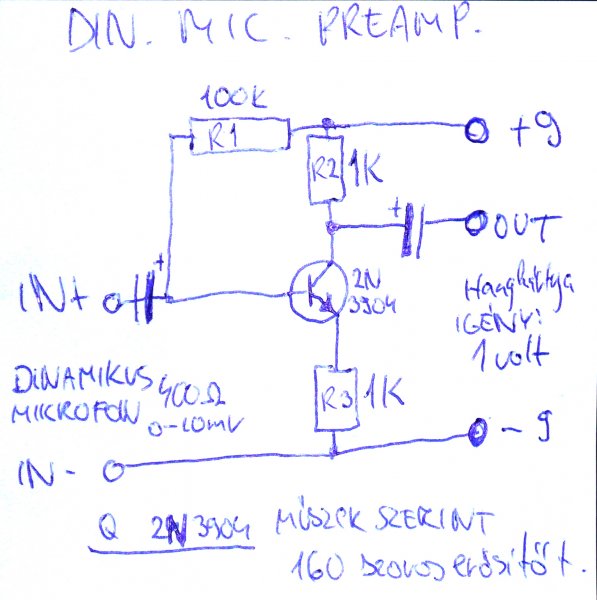 DIN. MIC. PREAMP.
100K
R1
+9
R2 1K
+
OUT
+
IN+
2N
3904
Hangkártya
IGÉNY:
1 volt
DINAMIKUS 400Ω
MIKROFON 0-10mV
R3 1K
- 9
IN -
Q 2N3904 MŰSZEK SZERINT
160 szoros erősítőt.